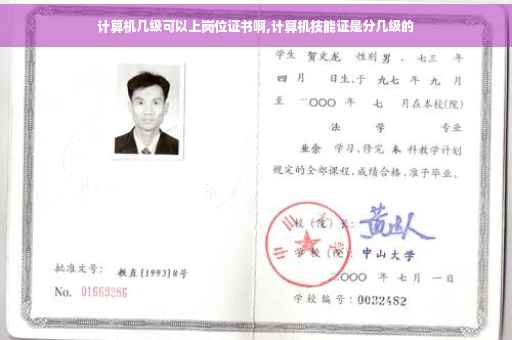 计算机几级可以上岗位证书啊,计算机技能证是分几级的
学生 贺文龙 性别 男 、七三 年
四 月 日生,于 九七 年 九 月
至 二〇〇〇 年 七 月在本校(院)
法 学 专业
业余 学习,修完 本 科教学计划
规定的全部课程,成绩合格,准予毕业。
校 (院) 长:
学 校 (院): 中山大学
二〇〇〇 年 七 月 一 日
学校编号: 0032482
批准文号: 教直[1993]8号
No. 01669286